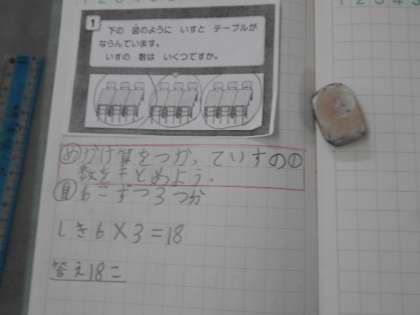 1 2 3 4 5
1 2 3 4 5
1
下の 図のように いすと テーブルが
ならんでいます。
いすの 数は いくつですか。
め かけ算をつかっていすの①
数をまとめよう。
自 6こずつ3つ分
しき6×3=18
答え18こ